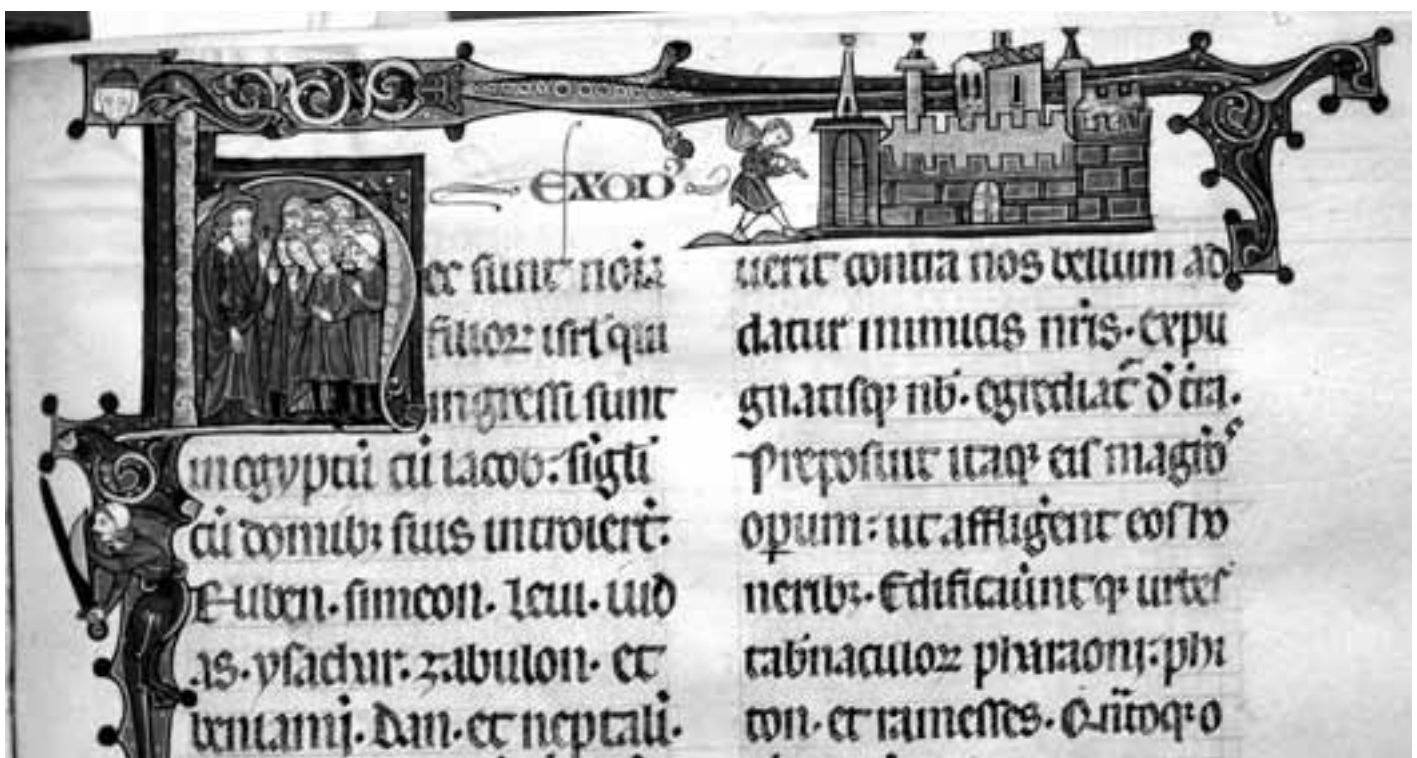 EXOD'
ec sunt noīa
filioꝝ isrl qui
ingressi sunt
in egyptū cū iacob. sigłi
cū domibꝫ suis introiert̄.
Ruben. simeon. leui. iud
as. ysachar. zabulon. et
beniami. Dan. et neptali.
uerit contra nos bellum ad
datur inimicis nris. expu
gnatisqꝫ nb̄. egrediat̄ d̄ tr̄a.
Preposuit itaqꝫ eis magr̄os
opum. ut affligent eos ho
neribꝫ. Edificauūntqꝫ urbes
tab̄naculoꝝ pharaoni. phi
ton. et ramesses. Qn̄toqꝫ o